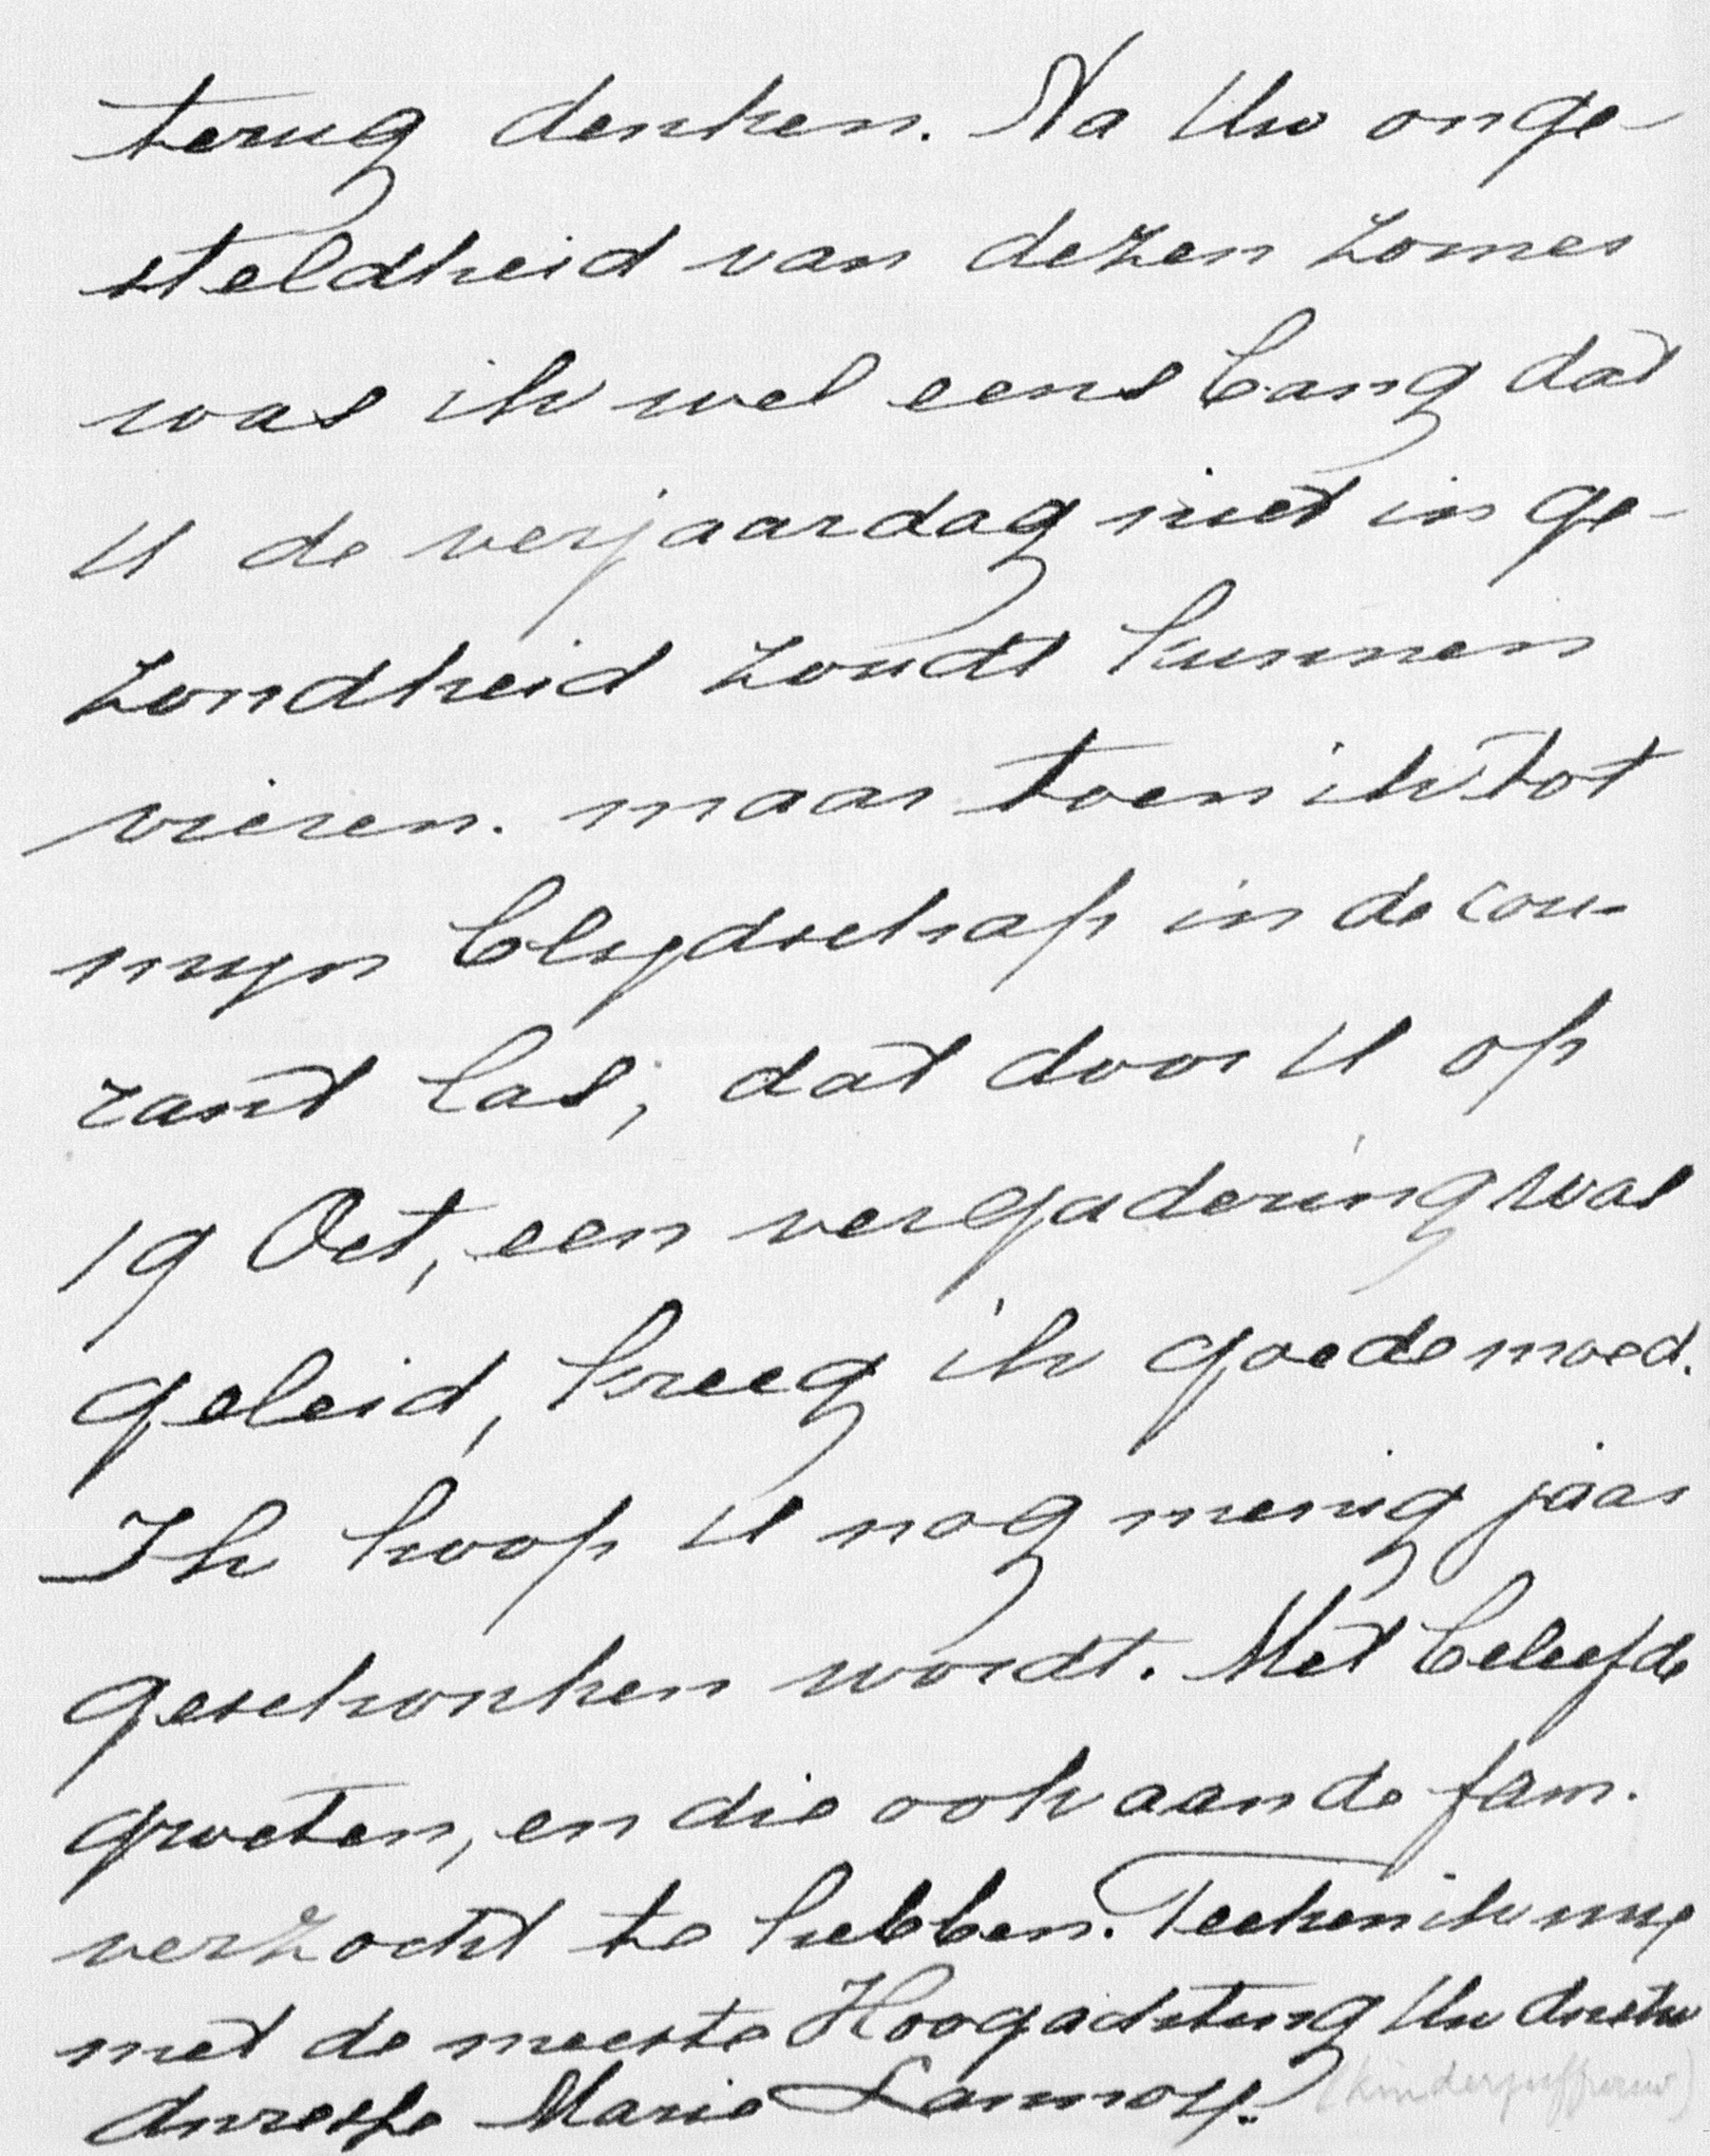 terug denken. Na Uw onge-
steldheid van dezen zomer
was ik wel eens bang dat
U de verjaardag niet in ge-
zondheid zoudt kunnen
vieren. maar toen ik tot
mijn blijdschap in de cou-
rant las, dat door U op
19 Oct, een vergadering was
geleid, kreeg ik goede moed.
Ik hoop U nog menig jaar
geschonken wordt. Met beleefde
groeten, en die ook aan de fam.
verzocht te hebben. Teeken ik mij
met de meeste Hoogachting Uw dnstw
dnresse Marie Lannoy.
(kinderjuffrouw)